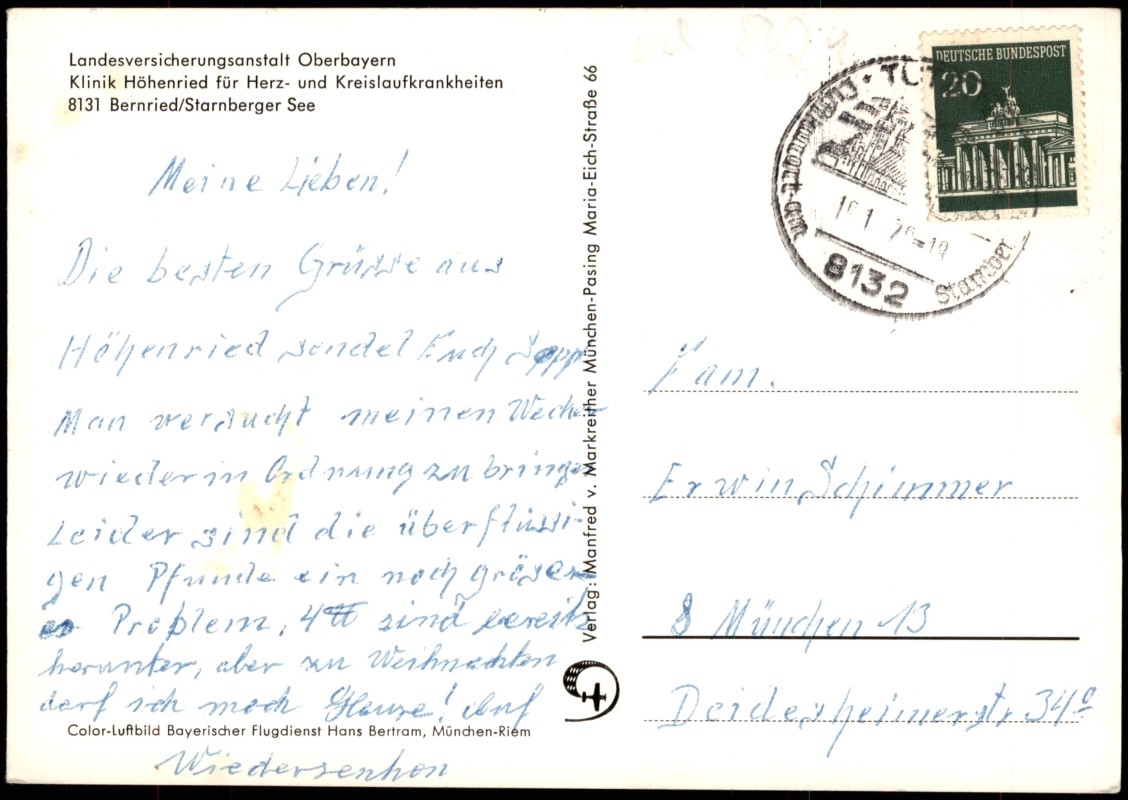 Landesversicherungsanstalt Oberbayern
Klinik Höhenried für Herz- und Kreislaufkrankheiten
8131 Bernried/Starnberger See
Meine Lieben!
Die besten Grüsse aus
Höhenried sendet Euch Sepp
Man versucht meinen Wecker
wieder in Ordnung zu bringen
Leider sind die überflüssi-
gen Pfunde ein noch gröser
es Problem, 4 sind bereits
herunter, aber zu Weihnachten
darf ich nach Hause! Auf
Color-Luftbild Bayerischer Flugdienst Hans Bertram, München-Riem
Wiedersehen
Verlag: Manfred v. Markreither München-Pasing Maria-Eich-Straße 66
DEUTSCHE BUNDESPOST
20
8132
Starnber
Fam.
Erwin Schimmer
8 München 13
Deidesheimerstr 34c